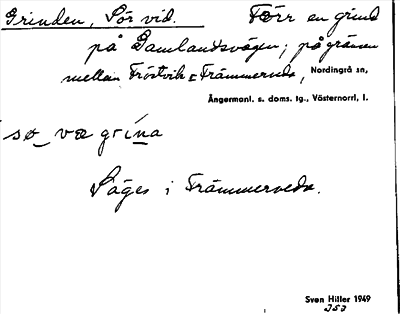 Grinden, Sör vid. Förr en grind
på Gamlandsvägen; på gränsen
mellan Fröstvik & Främmerveda, Nordingrå sn,
Ångermanl. s. doms. tg., Västernorrl. l.
sø_ væ grína
Säges i Främmerveda.
Sven Hiller 1949